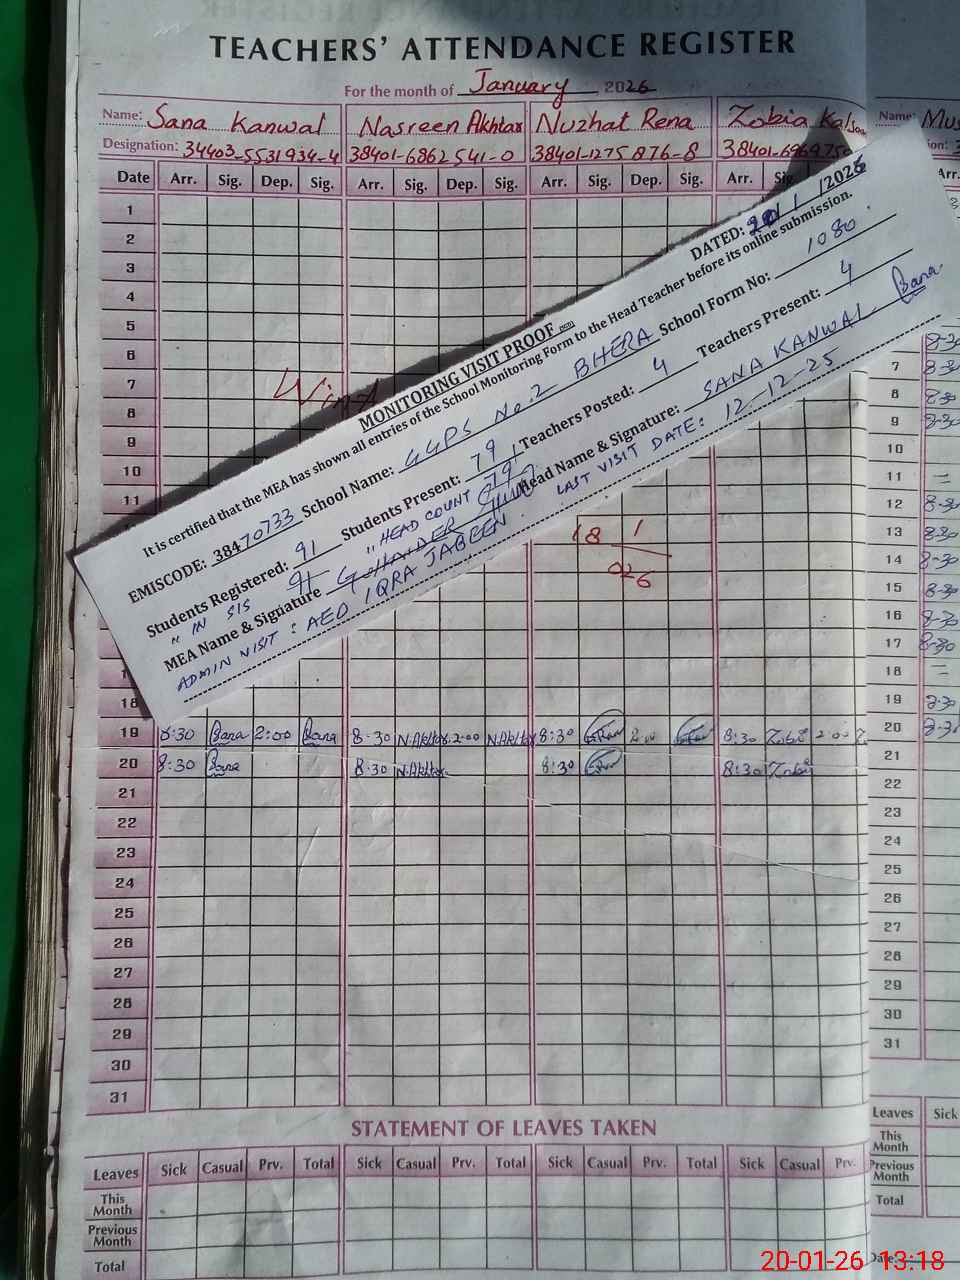 TEACHERS' ATTENDANCE REGISTER
For the month of January, 2026
Name: Sana Kanwal Nasreen Akhtar Nuzhat Rena Zobia Kalsoo Name: Mus
Designation: 34403-5531934-4 38401-6862541-0 38401-1275876-8 38401-6969750
Date Arr. Sig. Dep. Sig. Arr. Sig. Dep. Sig. Arr. Sig. Dep. Sig. Arr. Sig.
1
2
3
4
5
6 8-30
7 7 8-30
8 8 8-30
9 9 8-30
10 10
11 11 =
12 8-30
13 8-30
14 8-30
15 8-30
16 8-30
17 8-30
18 18 =
19 8:30 Sana 2:00 Sana 8:30 N.Akhtar 2:00 N.Akhtar 8:30 2:00 8:30 Zobi 2:00 Z 19 8-30
20 8:30 Sana 8:30 N.Akhtar 8:30 8:30 Zobi 20 8-30
21 21
22 22
23 23
24 24
25 25
26 26
27 27
28 28
29 29
30 30
31 31
Wint
18 1
026
DATED: 20/1/2026
MONITORING VISIT PROOF
It is certified that the MEA has shown all entries of the School Monitoring Form to the Head Teacher before its online submission.
EMISCODE: 38470733 School Name: GGPS No.2 BHERA School Form No: 1080
Students Registered: 91 Students Present: 79 Teachers Posted: 4 Teachers Present: 4
" IN SIS 91 " HEAD COUNT 79
MEA Name & Signature G. HAIDER Head Name & Signature: SANA KANWAL Sana
ADMIN VISIT: AEO IQRA JABEEN. LAST VISIT DATE: 12-12-25
STATEMENT OF LEAVES TAKEN
Leaves Sick Casual Prv. Total Sick Casual Prv. Total Sick Casual Prv. Total Sick Casual Prv. Leaves Sick
This Month This Month
Previous Month Previous Month
Total Total
Date:
20-01-26 13:18